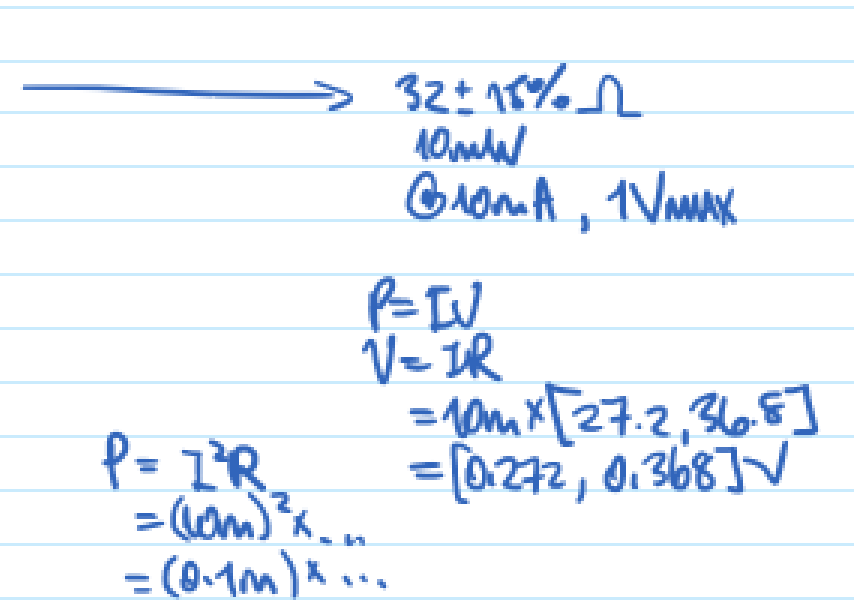 32 ± 15% Ω
10mW
@10mA, 1VMAX
P = IV
V = IR
= 10m × [27.2, 36.8]
= [0.272, 0.368]V
P = I²R
= (10m)² × ...
= (0.1m) × ...